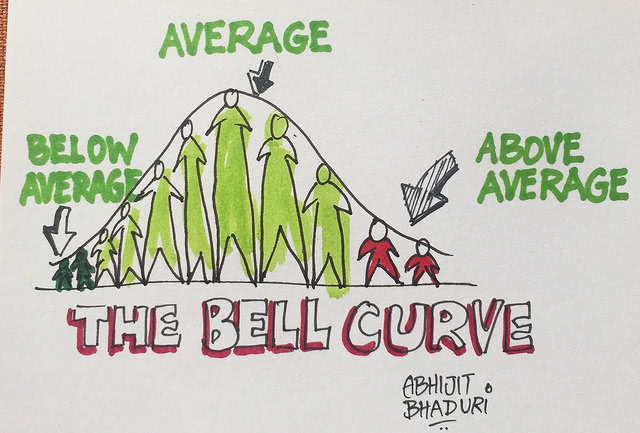 AVERAGE
BELOW
AVERAGE
ABOVE
AVERAGE
THE BELL CURVE
ABHIJIT
BHADURI